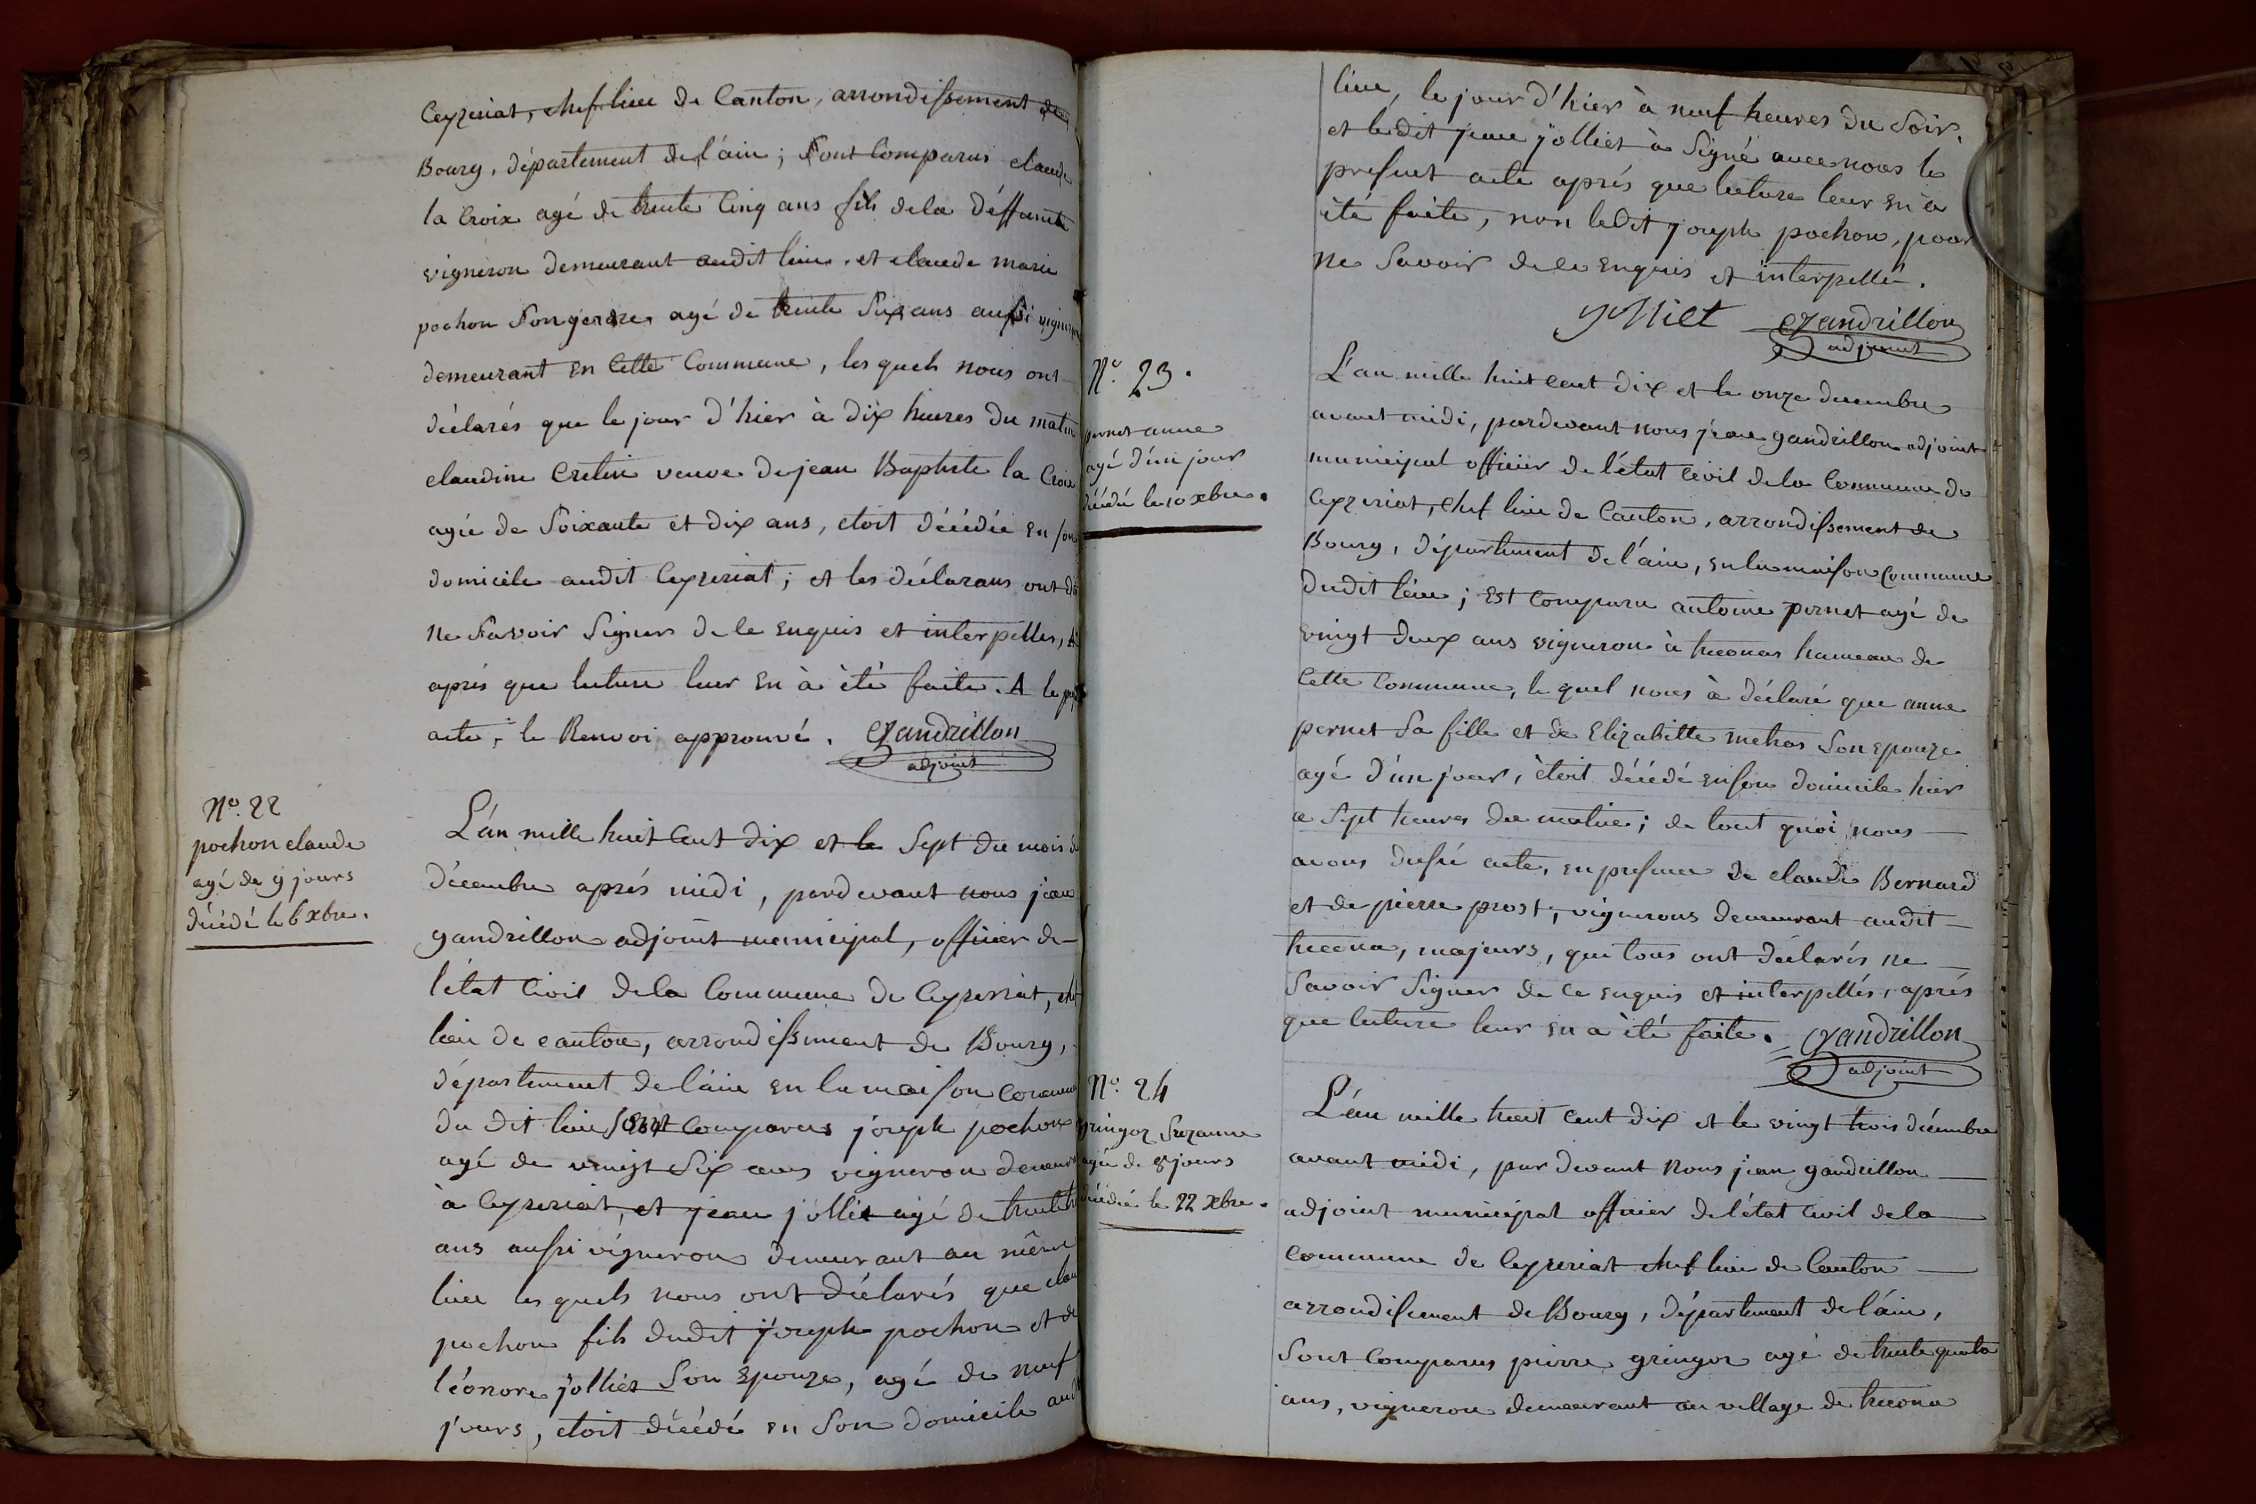 Ceyzeriat, chef lieu de Canton, arrondissement de
Bourg, département de l'ain; sont Comparus claude
la Croix agé de trente Cinq ans fils de la déffunte
vigneron demeurant audit lieu. et claude marie
pochon son gendre, agé de trente six ans aussi vigneron
demeurant en Cette Commune, les quels nous ont
déclarés que le jour d'hier à dix heures du matin
claudine Cretin veuve de jean Baptiste la Croix
agée de soixante et dix ans, etoit décédée en son
domicile audit Ceyzeriat; et les déclarans ont dit
ne savoir signer de ce enquis et interpellés,
après que lecture leur en à été faite. A le
acte, le Renvoi approuvé. Gandrillon
adjoint
No. 22
pochon claude
agé de 9 jours
décédé le 6 xbre.
L'an mille huit cent dix et le sept du mois de
décembre aprés midi, pardevant nous jean
gandrillon adjoint municipal, officier de
l'état Civil de la Commune de Ceyzeriat, chef
lieu de canton, arrondissement de Bourg,
département de l'ain en la maison commune
du dit lieu sont comparus joseph pochon
agé de vingt six ans vigneron
à Ceyzeriat, et jean jolliet agé de trente
ans aussi vigneron demeurant au même
lieu les quels nous ont déclarés que
pochon fils dudit joseph pochon et de
léonore jolliet son epouze, agé de neuf
jours, etoit décédé en son domicile
lieu, le jour d'hier à neuf heures du soir,
et le dit jean jolliet à signé avec nous le
present acte aprés que lecture leur en a
été faite, non ledit joseph pochon, pour
ne savoir de ce enquis et interpellé.
jolliet Gandrillon
adjoint
No. 23.
pernet anne
agé d'un jour
décédé le 10 xbre.
L'an mille huit cent dix et le onze decembre
avant midi, pardevant nous jean gandrillon adjoint
municipal officier de l'état civil de la Commune de
Ceyzeriat, chef lieu de Canton, arrondissement de
Bourg, département de l'ain, en la maison Commune
dudit lieu; est Comparu antoine pernet agé de
vingt deux ans vigneron à treconas hameau de
Cette Commune, le quel nous à déclaré que anne
pernet sa fille et de Elizabitte son epouze
agé d'un jour, ètoit décédé en son domicile hier
a sept heures du matin; de tout quoi nous
avons dressé acte, en presence de claude Bernard
et de pierre prost, vignerons demeurant audit
treconas, majeurs, qui tous ont déclarés ne
savoir signer de ce enquis et interpellés, aprés
que lecture leur en a été faite. Gandrillon
adjoint
No. 24
gringoz suzanne
agée de 8 jours
décédée le 22 xbre.
L'an mille huit cent dix et le vingt trois décembre
avant midi, par devant nous jean gandrillon
adjoint municipal officier de l'état civil de la
Commune de Ceyzeriat chef lieu de Canton
arrondissement de Bourg, département de l'ain,
sont Comparus pierre gringoz agé de trente quatre
ans, vigneron demeurant au village de trecona